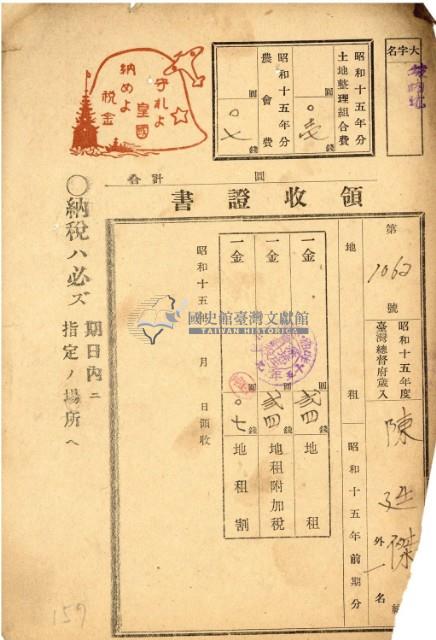 大字名
昭和十五年分
土地整理組合費
圓
〇壱
錢
昭和十五年分
農會費
圓
〇七
錢
守れよ
皇國
納めよ
税金
合計
圓
領收證書
第1062號
昭和十五年度
臺灣總督府歲入
陳廷傑
外一名
地租
昭和十五年前期分
一金
圓
弐四
錢
地租
一金
圓
弐四
錢
地租附加税
一金
圓
〇七
錢
地租割
昭和十五年
月
日領收
國史館臺灣文獻館
TAIWAN HISTORICA
〇納税ハ必ズ
期日内ニ
指定ノ場所ヘ
159